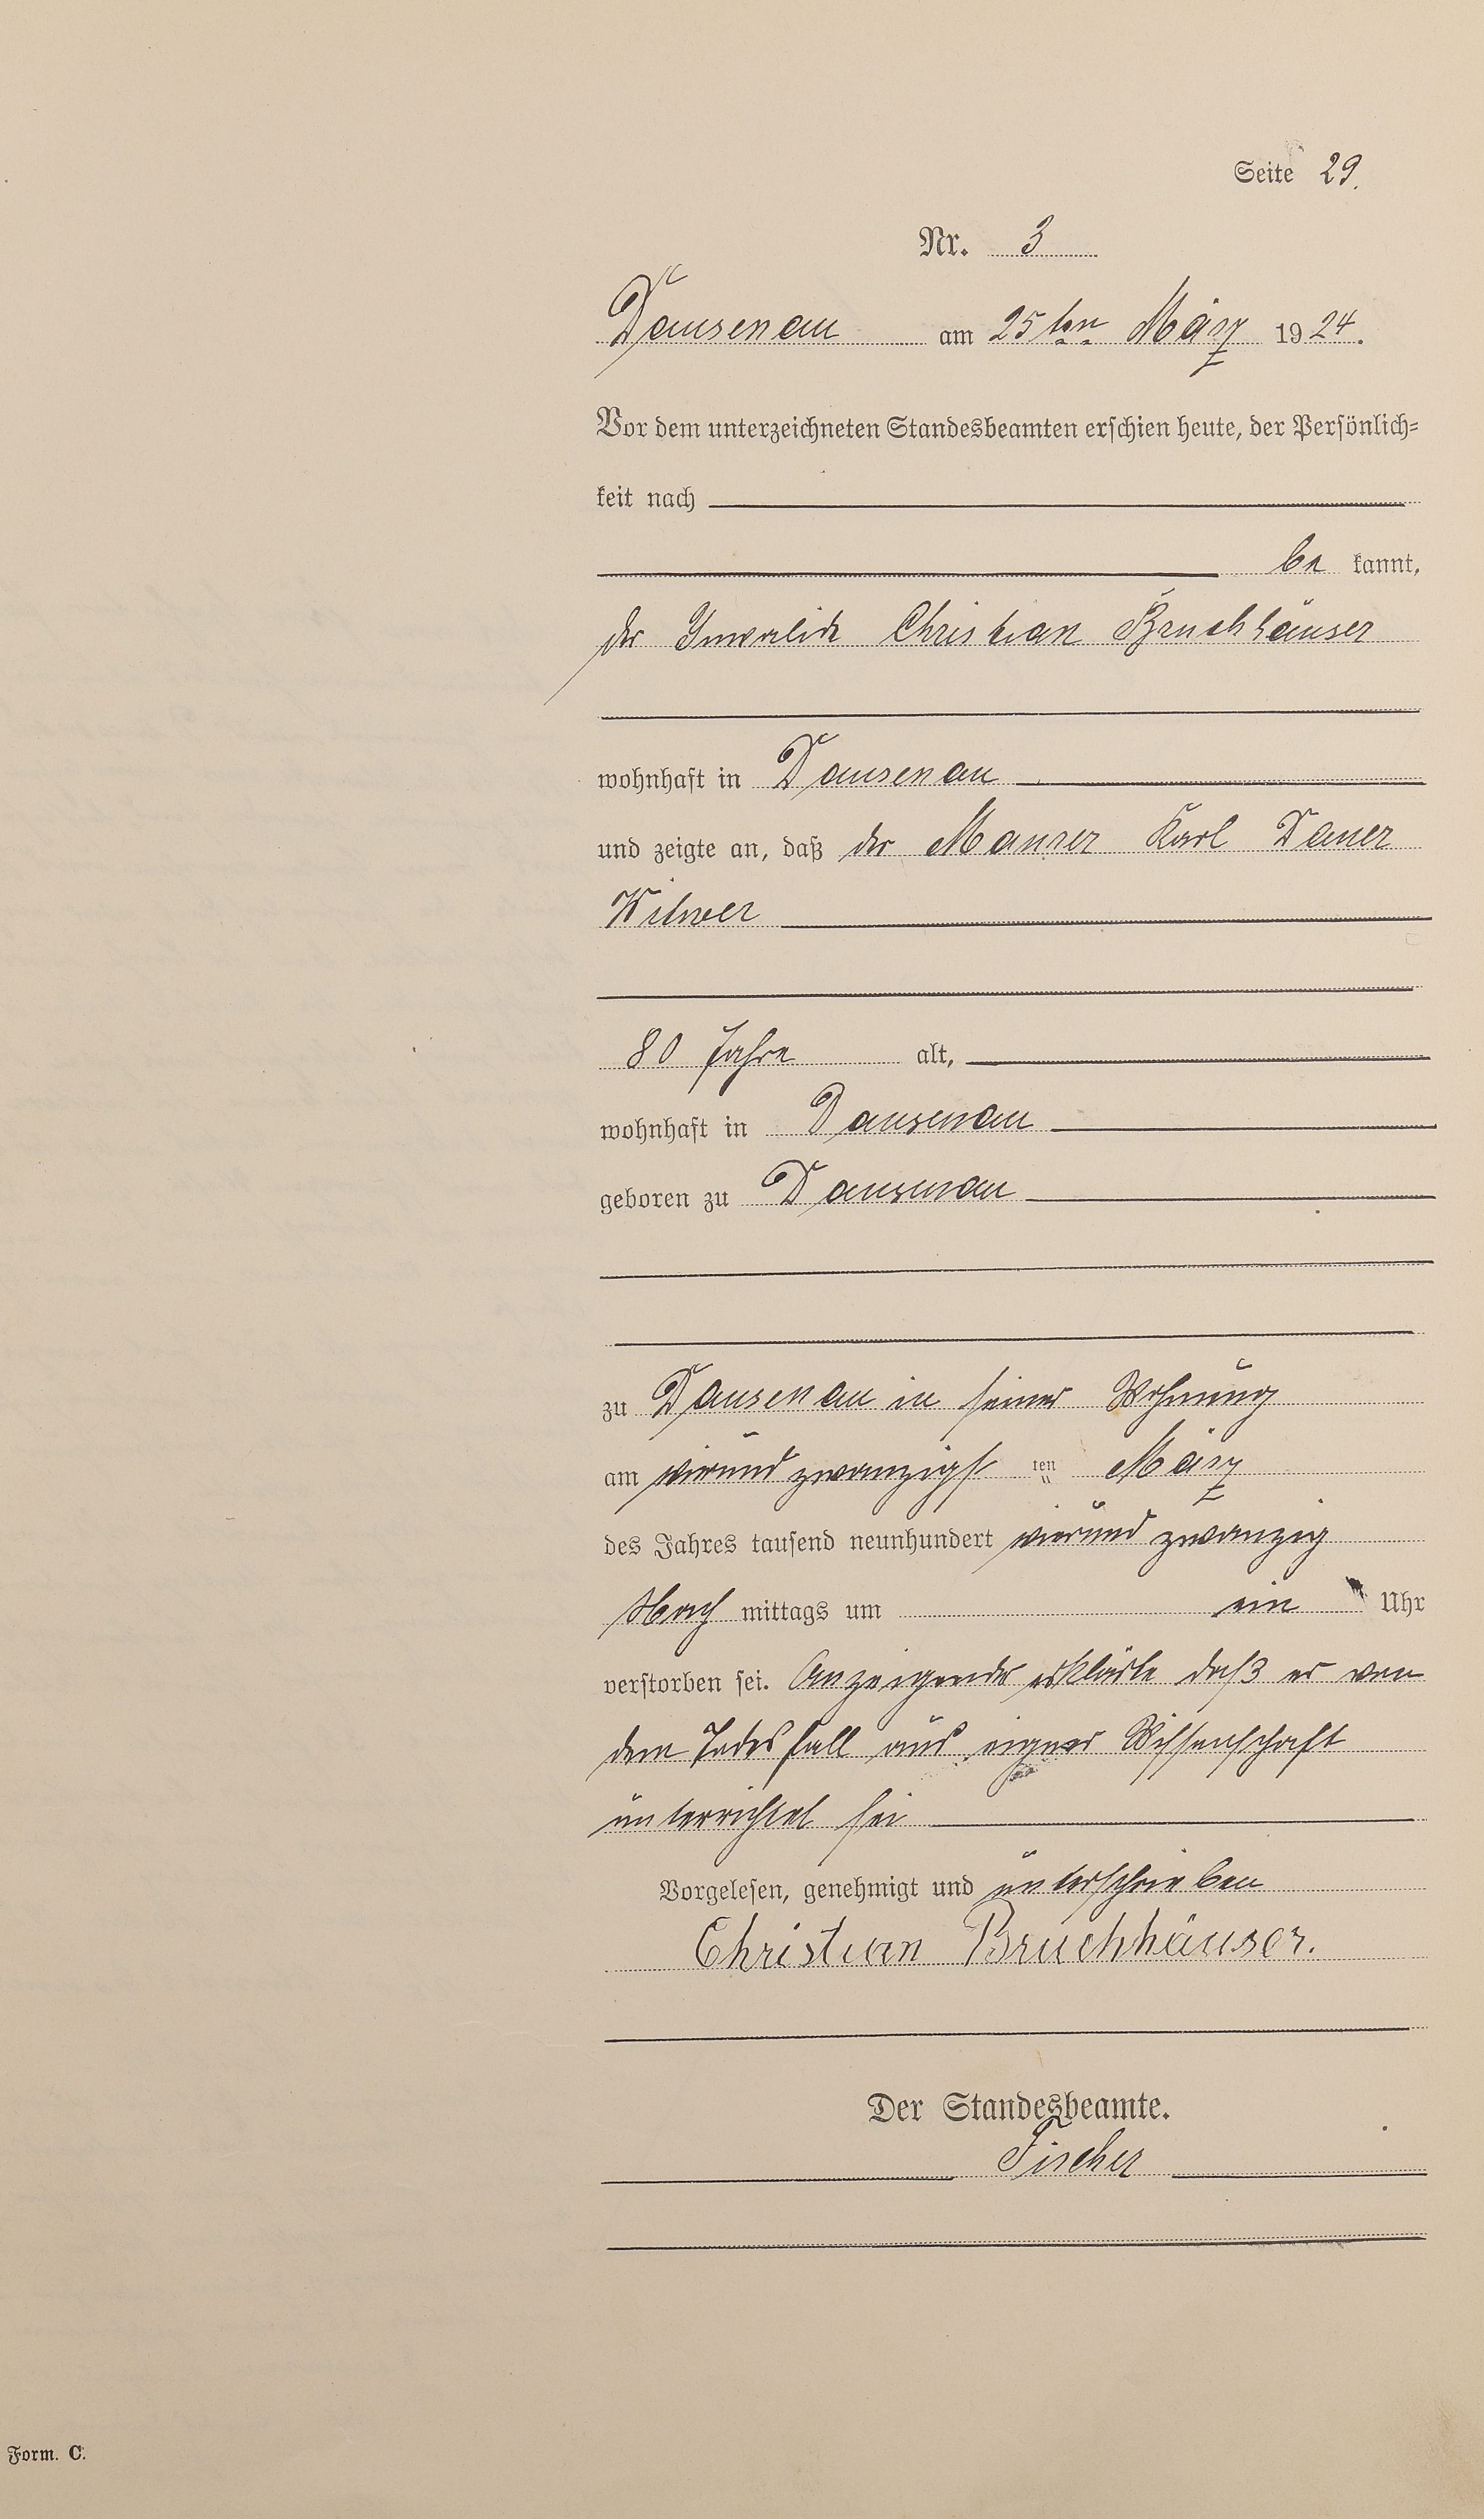 Seite 29.
Nr. 3
Dausenau am 25ten März 1924.
Vor dem unterzeichneten Standesbeamten erschien heute, der Persönlich=
keit nach
be kannt,
der Invalide Christian Bruchhäuser
wohnhaft in Dausenau
und zeigte an, daß der Maurer Karl Dauer
Witwer
80 Jahre alt,
wohnhaft in Dausenau
geboren zu Dausenau
zu Dausenau in seiner Wohnung
am vierundzwanzigst ten März
des Jahres tausend neunhundert vierundzwanzig
Nach mittags um ein Uhr
verstorben sei. Anzeigender erklärte daß er von
dem Todesfall aus eigner Wissenschaft
unterrichtet sei
Vorgelesen, genehmigt und unterschrieben
Christian Bruchhäuser.
Der Standesbeamte.
Fischer
Form. C.